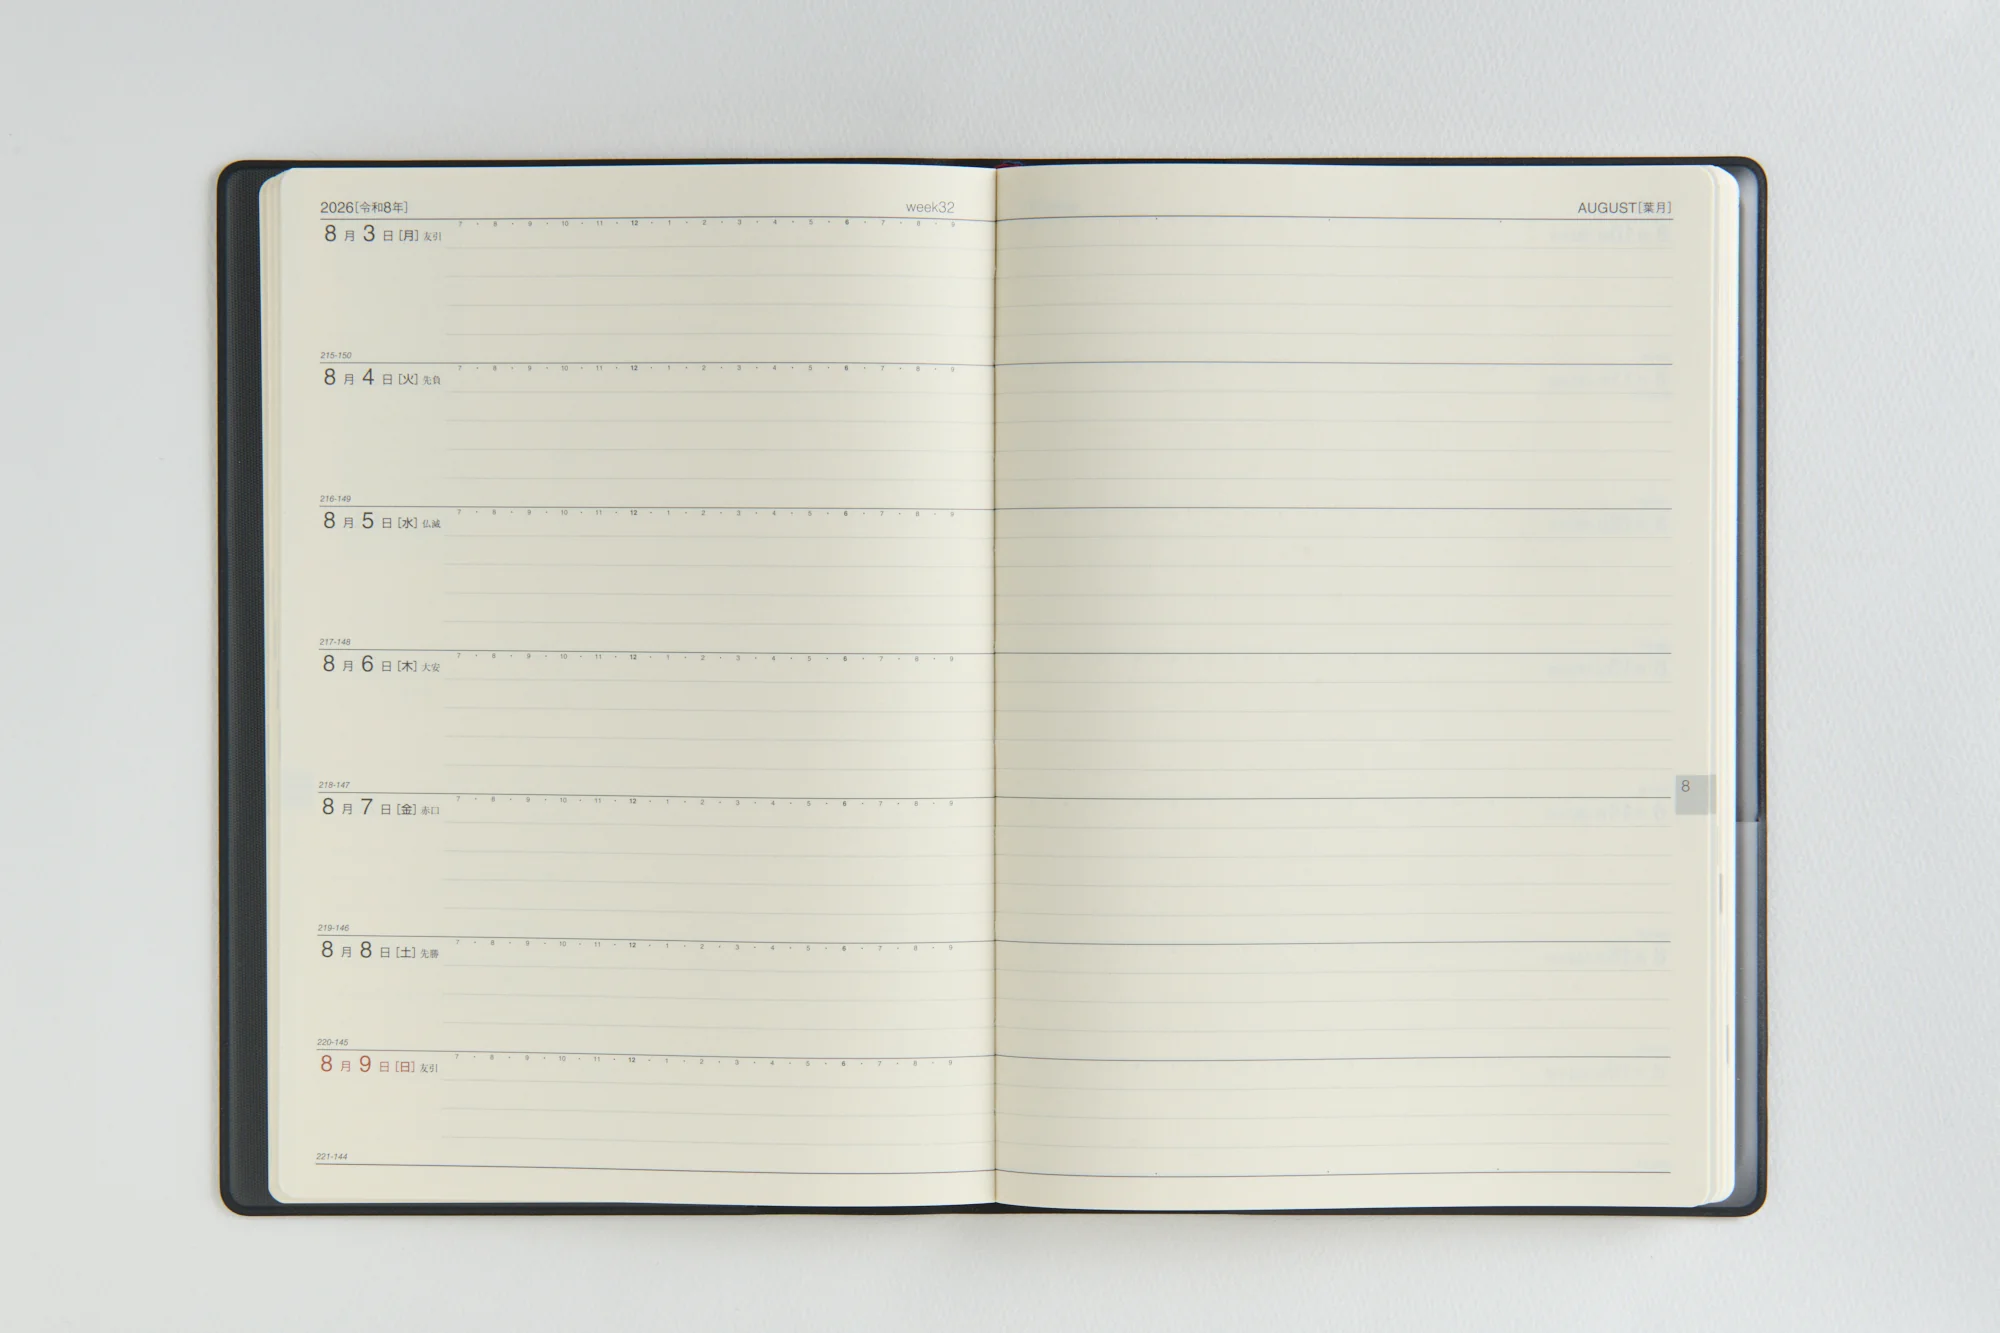 2026[令和8年] week32
7 ・ 8 ・ 9 ・ 10 ・ 11 ・ 12 ・ 1 ・ 2 ・ 3 ・ 4 ・ 5 ・ 6 ・ 7 ・ 8 ・ 9
8月3日[月] 友引
215-150
7 ・ 8 ・ 9 ・ 10 ・ 11 ・ 12 ・ 1 ・ 2 ・ 3 ・ 4 ・ 5 ・ 6 ・ 7 ・ 8 ・ 9
8月4日[火] 先負
216-149
7 ・ 8 ・ 9 ・ 10 ・ 11 ・ 12 ・ 1 ・ 2 ・ 3 ・ 4 ・ 5 ・ 6 ・ 7 ・ 8 ・ 9
8月5日[水] 仏滅
217-148
7 ・ 8 ・ 9 ・ 10 ・ 11 ・ 12 ・ 1 ・ 2 ・ 3 ・ 4 ・ 5 ・ 6 ・ 7 ・ 8 ・ 9
8月6日[木] 大安
218-147
7 ・ 8 ・ 9 ・ 10 ・ 11 ・ 12 ・ 1 ・ 2 ・ 3 ・ 4 ・ 5 ・ 6 ・ 7 ・ 8 ・ 9
8月7日[金] 赤口
219-146
7 ・ 8 ・ 9 ・ 10 ・ 11 ・ 12 ・ 1 ・ 2 ・ 3 ・ 4 ・ 5 ・ 6 ・ 7 ・ 8 ・ 9
8月8日[土] 先勝
220-145
7 ・ 8 ・ 9 ・ 10 ・ 11 ・ 12 ・ 1 ・ 2 ・ 3 ・ 4 ・ 5 ・ 6 ・ 7 ・ 8 ・ 9
8月9日[日] 友引
221-144
AUGUST[葉月]
8